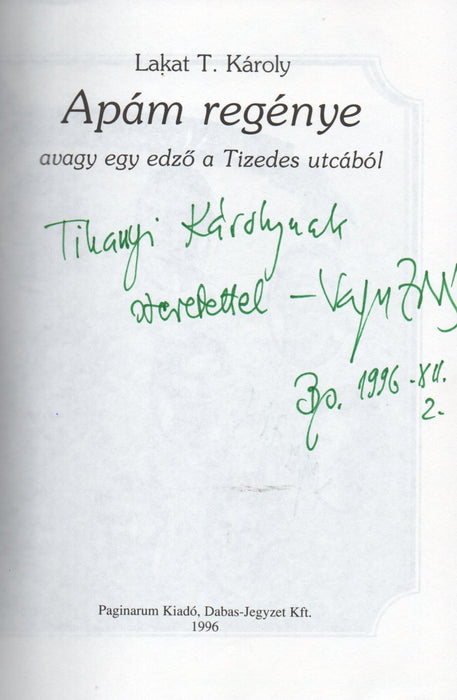 Lakat T. Károly
Apám regénye
avagy egy edző a Tizedes utcából
Tihanyi Károlynak
szeretettel –
Bp. 1996. XII.
2.
Paginarum Kiadó, Dabas-Jegyzet Kft.
1996